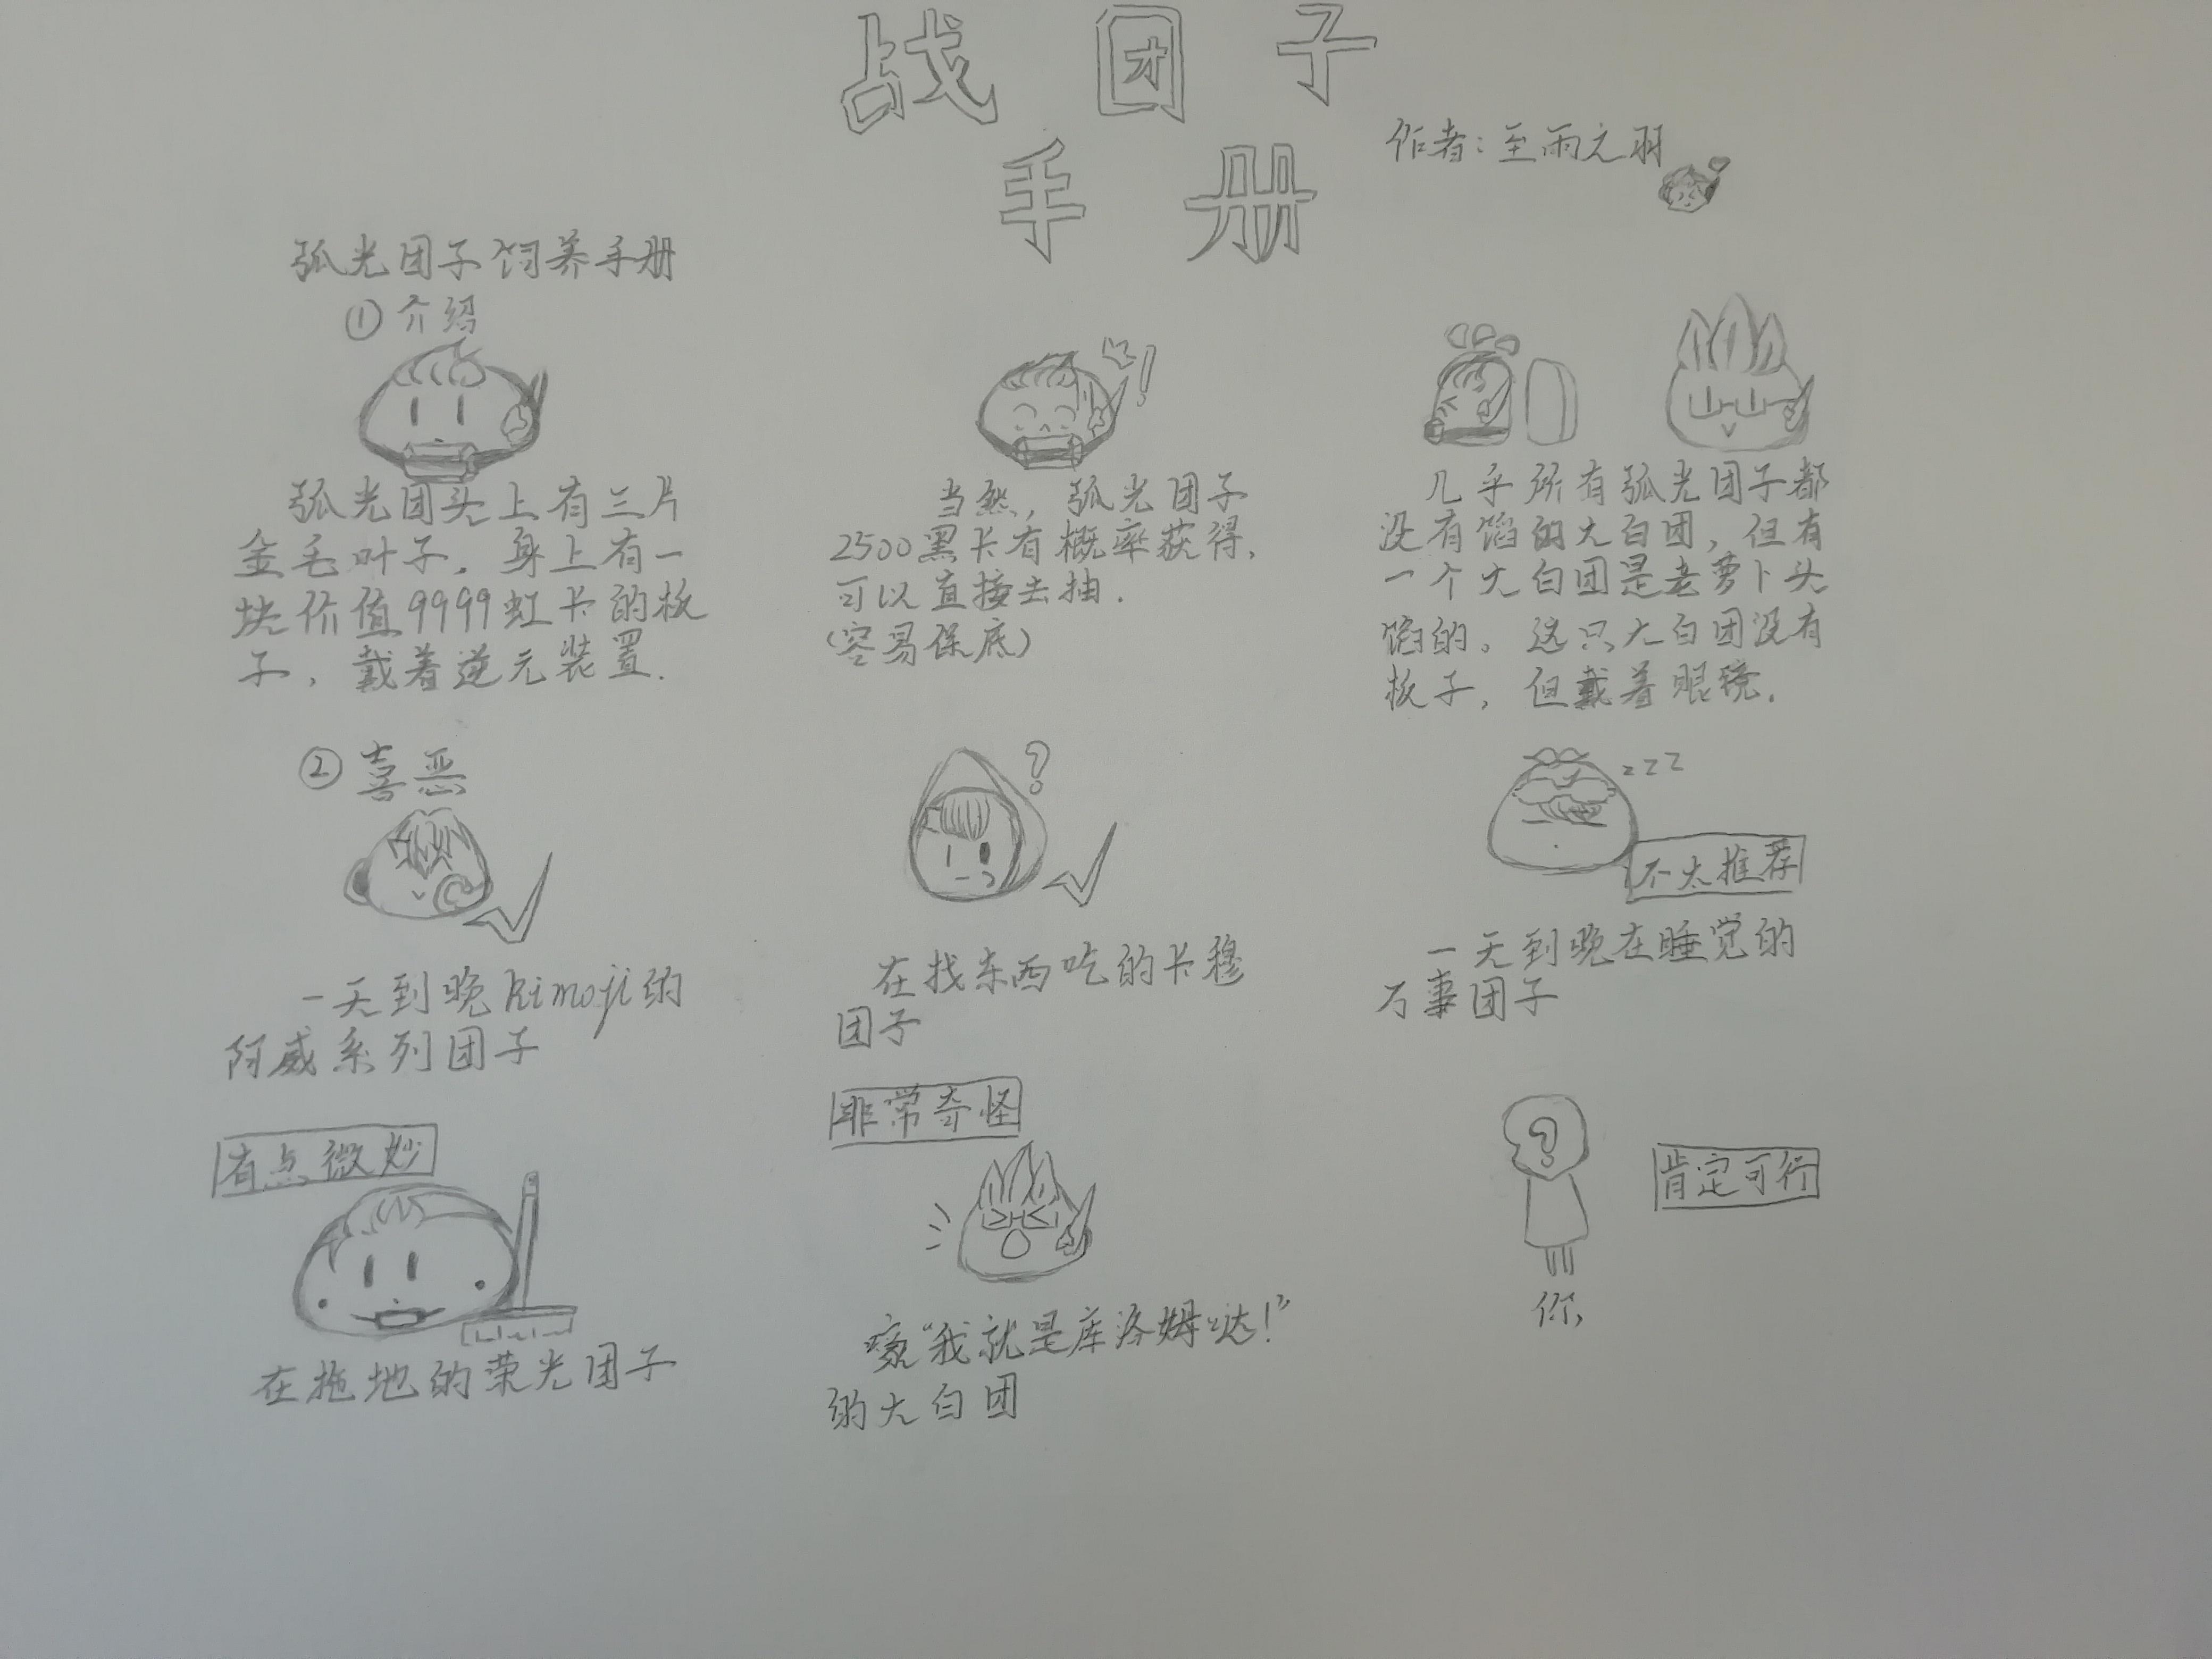 战团子
手册
作者：至雨之羽
弧光团子饲养手册
①介绍
弧光团头上有三片
金毛叶子，身上有一
块价值9999虹卡的板
子，戴着逆元装置.
当然，弧光团子
2500黑卡有概率获得，
可以直接去抽.
（容易保底）
几乎所有弧光团子都
没有馅的大白团，但有
一个大白团是老萝卜头
馅的。这只大白团没有
板子，但戴着眼镜.
②喜恶
一天到晚kimoji的
阿威系列团子
?
在找东西吃的卡穆
团子
zzz
不太推荐
一天到晚在睡觉的
万事团子
有点微妙
在拖地的荣光团子
非常奇怪
喊“我就是库洛姆哒！”
的大白团
?
肯定可行
你，